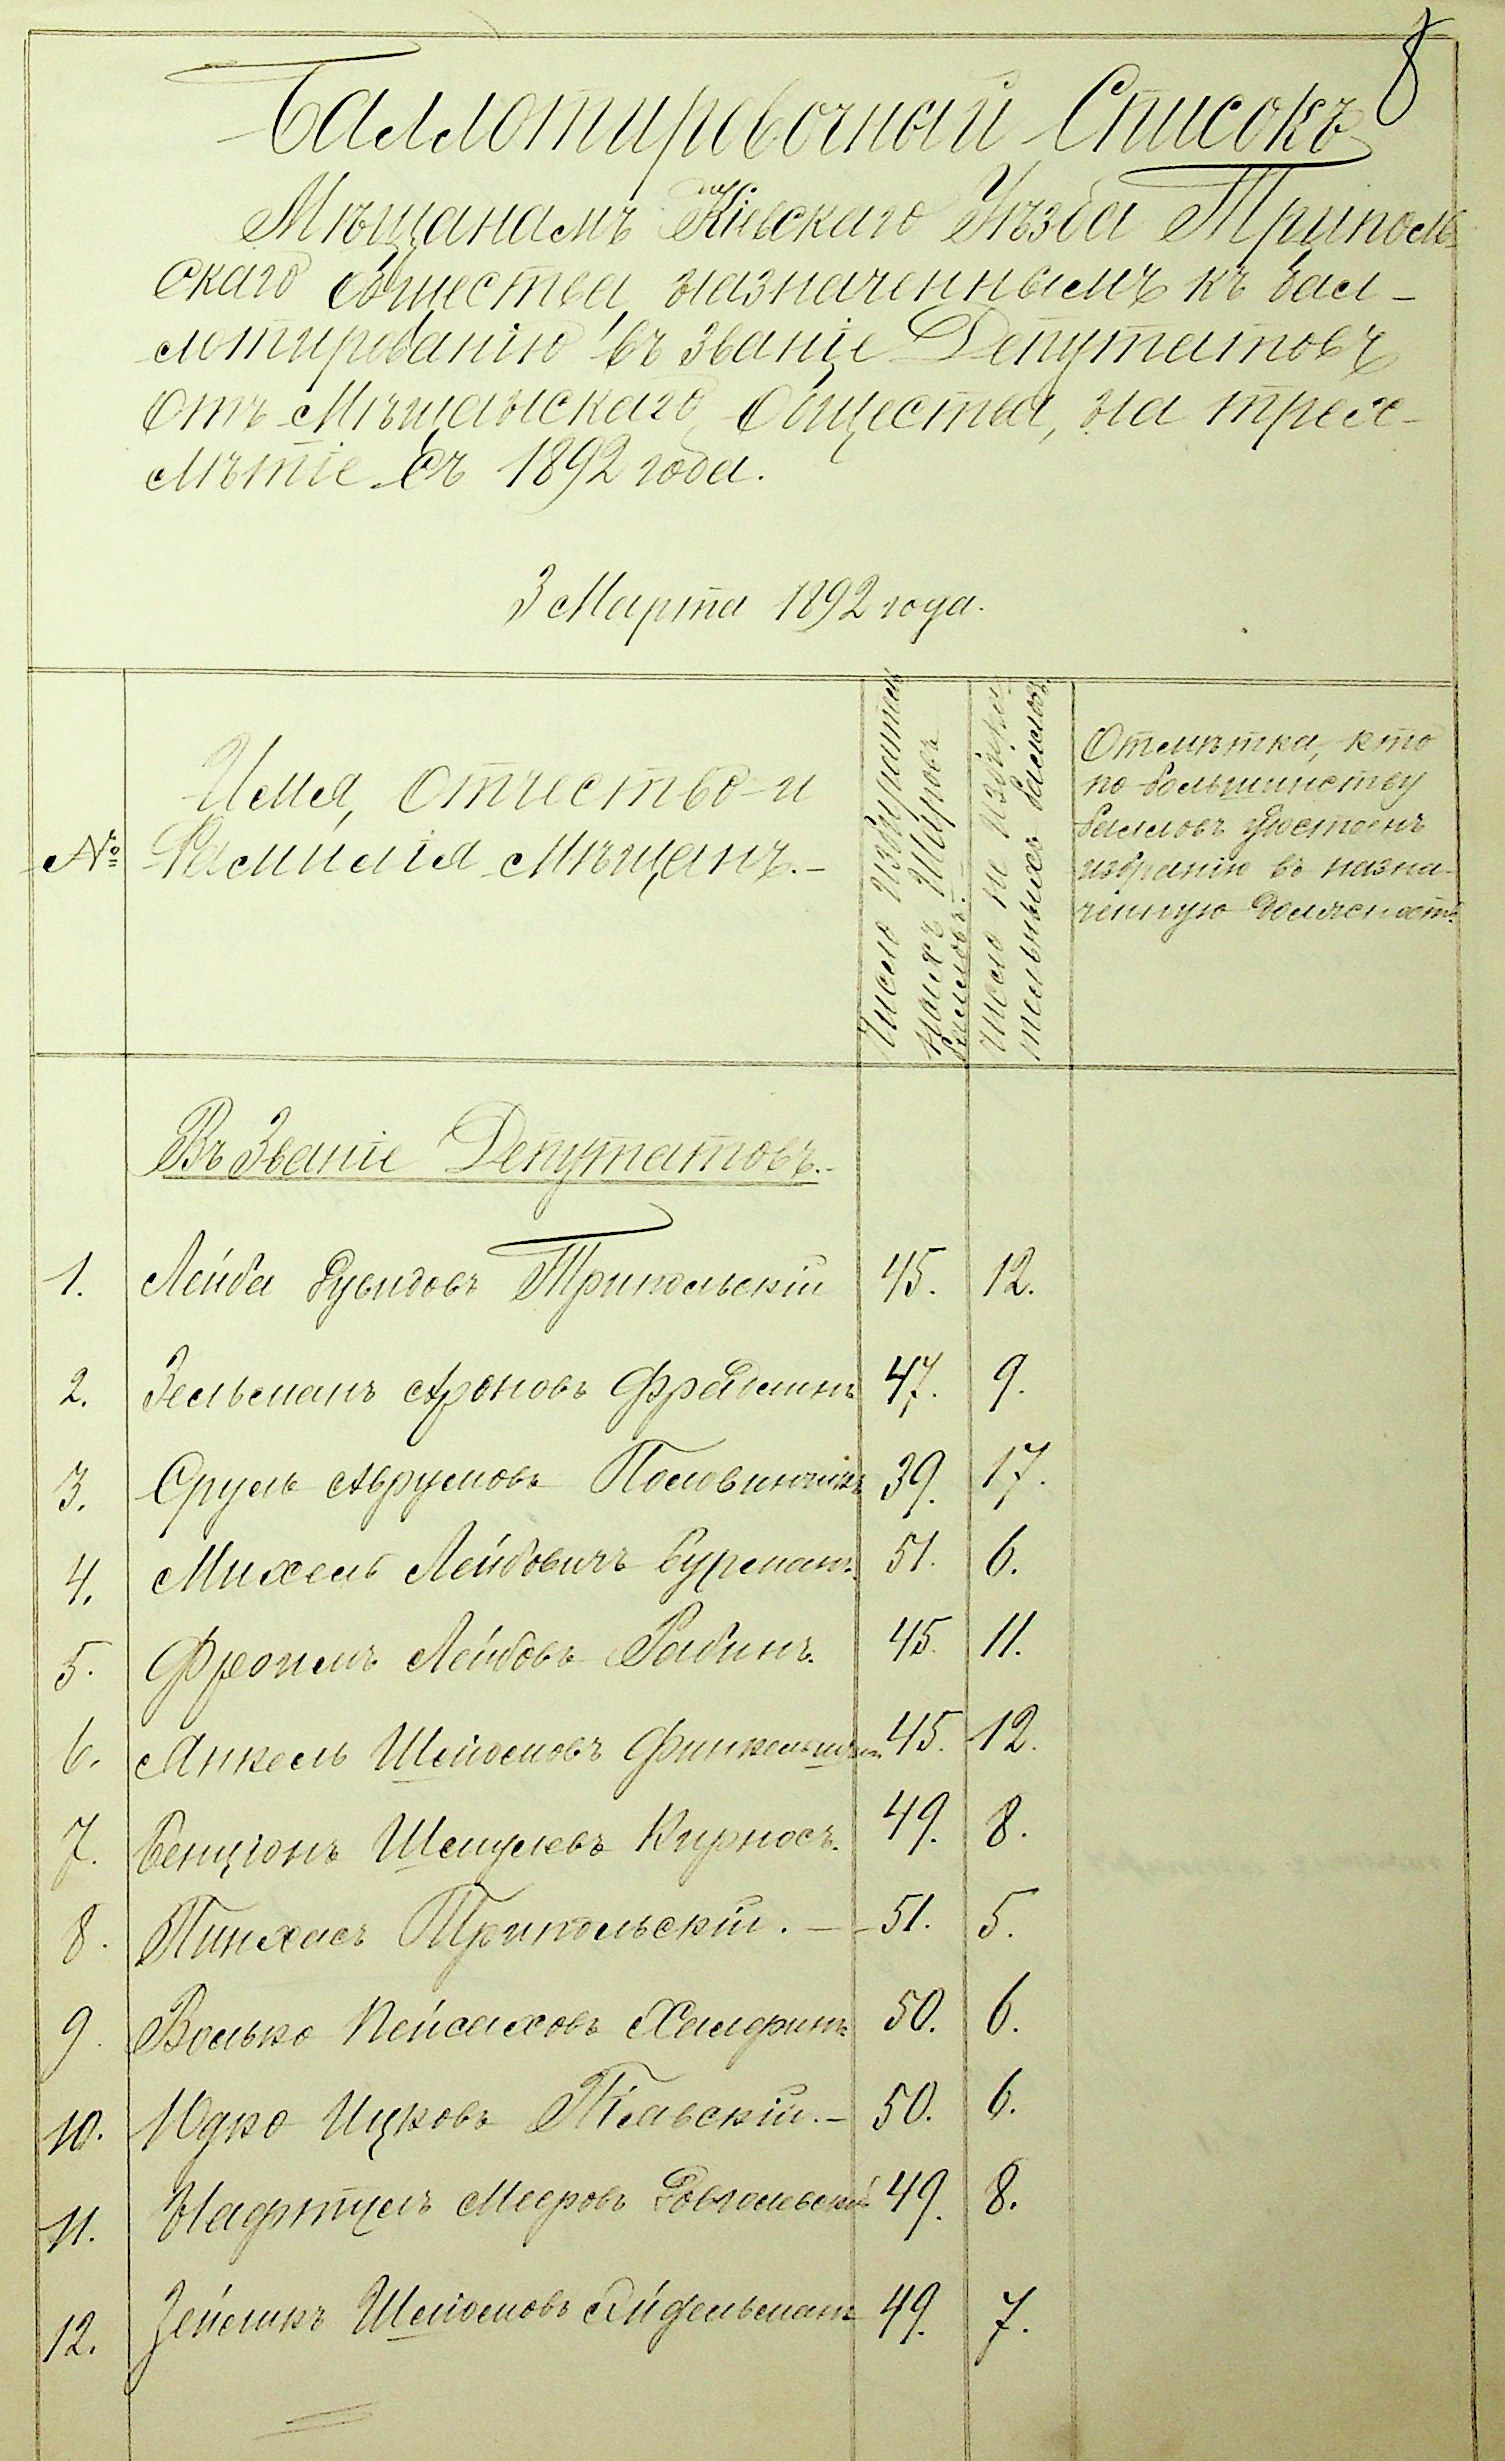 8
Баллотировочный Списокъ
Мѣщанамъ Кіевскаго Уѣзда Триполь
скаго общества, назначеннымъ къ бал-
лотированію въ званіе Депутатовъ
отъ Мѣщанскаго Общества, на трех-
лѣтіе съ 1892 года.
3 Марта 1892 года.
№
Имя, отчество и
Фамилія Мѣщанъ.-
Число избиратель
ныхъ Шаровъ
баловъ.
Число не избира-
тельныхъ баловъ.
Отмѣтка, кто
по большинству
балловъ удостоенъ
избранію въ назна-
ченную должность.
Въ Званіе Депутатовъ.-
1. Лейба Дувидовъ Трипольскій 45. 12.
2. Зельманъ Ароновъ Фрадлинъ 47. 9.
3. Сруль Аврумовъ Половинчикъ 39. 17.
4. Михель Лейбовичъ Бурманъ. 51. 6.
5. Фроимъ Лейбовъ Рабинъ. 45. 11.
6. Янкель Шейломовъ Финкельштейн 45. 12.
7. Бенціонъ Шмулевъ Кирносъ. 49. 8.
8. Пинхасъ Трипольскій. - 51. 5.
9. Волько Пейсаховъ Халфинъ 50. 6.
10. Юдко Ицковъ 50. 6.
11. Нафтулъ Мееровъ 49. 8.
12. Зейликъ Шейломовъ Эйдельманъ 49. 7.